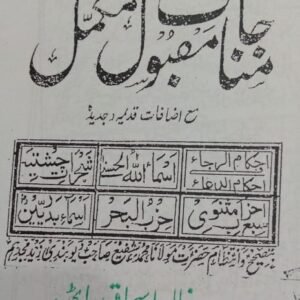 مناجات مقبول مکمل
مع اضافات قدیمہ و جدیدہ
احکام الرجاء
احکام الدعاء
اسماء اللہ الحسنیٰ
شجرات چشتیہ
احزاب مثنوی
سبع
حزب البحر
اسماء بدریین
حضرت مولانا محمد شفیع صاحب دیوبندی